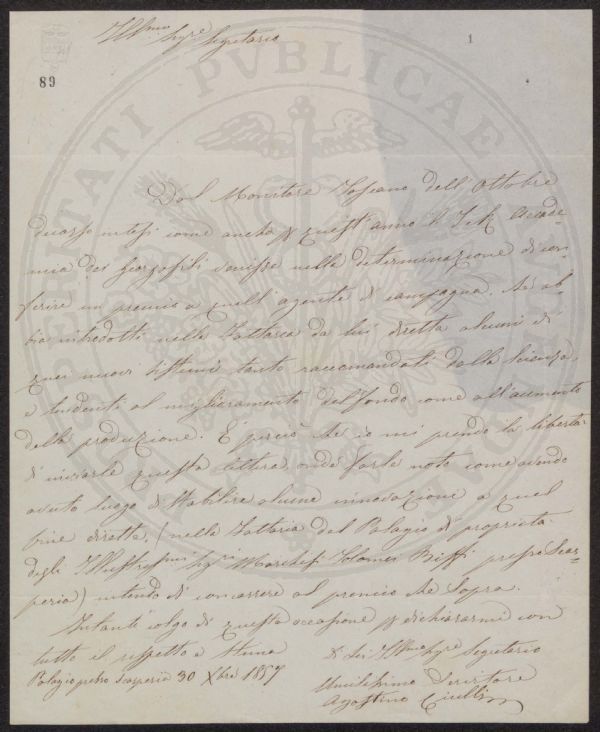 Ill.mo Sig.re Segretario
1
89
PROSPERITATI PVBLICAE AVGENDAE
Dal Monitore Toscano dell'Ottobre
decorso intesi come anche p quest'anno l'I. e R. Accade-
mia dei Georgofili venisse nella determinazione di con-
ferire un premio a quell'agente di campagna, che ab-
bia introdotti nella Fattoria da lui diretta alcuni di
quei nuovi sistemi tanto raccomandati dalla Scienza,
e tendenti al miglioramento del fondo come all'aumento
della produzione. E perciò che io mi prendo la libertà
d'inviarle questa lettera, onde farle noto come avendo
avuto luogo di stabilire alcune innovazione a quel
fine dirette, (nella Fattoria del Palagio di proprietà
degli Illustrissmi Sig.ri Marchesi Coloner Biffi presso Scar-
peria) intendo di concorrere al premio che sopra.
Intanto colgo di questa occasione p dichiararmi con
tutto il rispetto e stima
Di Lei Ill.mo Sig.re Segretario
Palagio presso Scarperia 30 Xbre 1857
Umilissimo Servitore
Agostino Ciulli